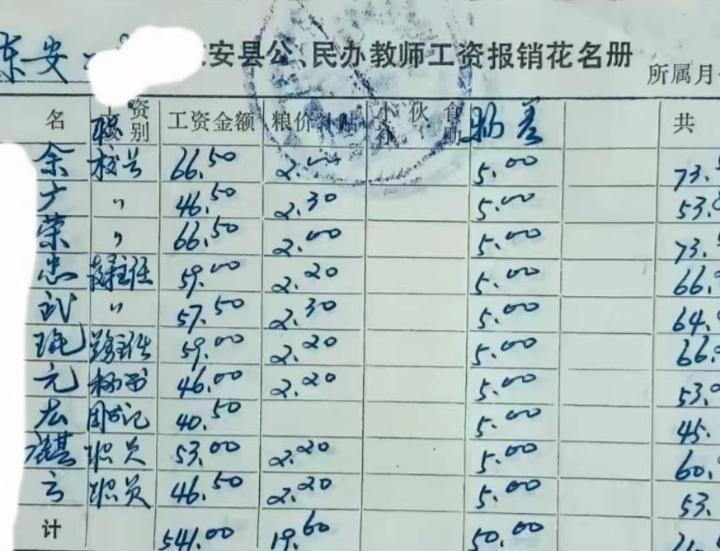 东安
安县公、民办教师工资报销花名册
所属月
名 级别 工资金额 粮价补贴 小伙食补助 副差 共
余 校长 66.50 2.00 5.00 73.
广 〃 46.50 2.30 5.00 53.
荣 〃 66.50 2.00 5.00 73.
忠 主任 59.00 2.20 5.00 66.
武 〃 57.50 2.30 5.00 64.
琨 主任 59.00 2.20 5.00 66.
元 秘书 46.00 2.20 5.00 53.
左 团书记 40.50 5.00 45.
麒 职员 53.00 2.20 5.00 60.
云 职员 46.50 2.20 5.00 53.
计 541.00 19.60 50.00